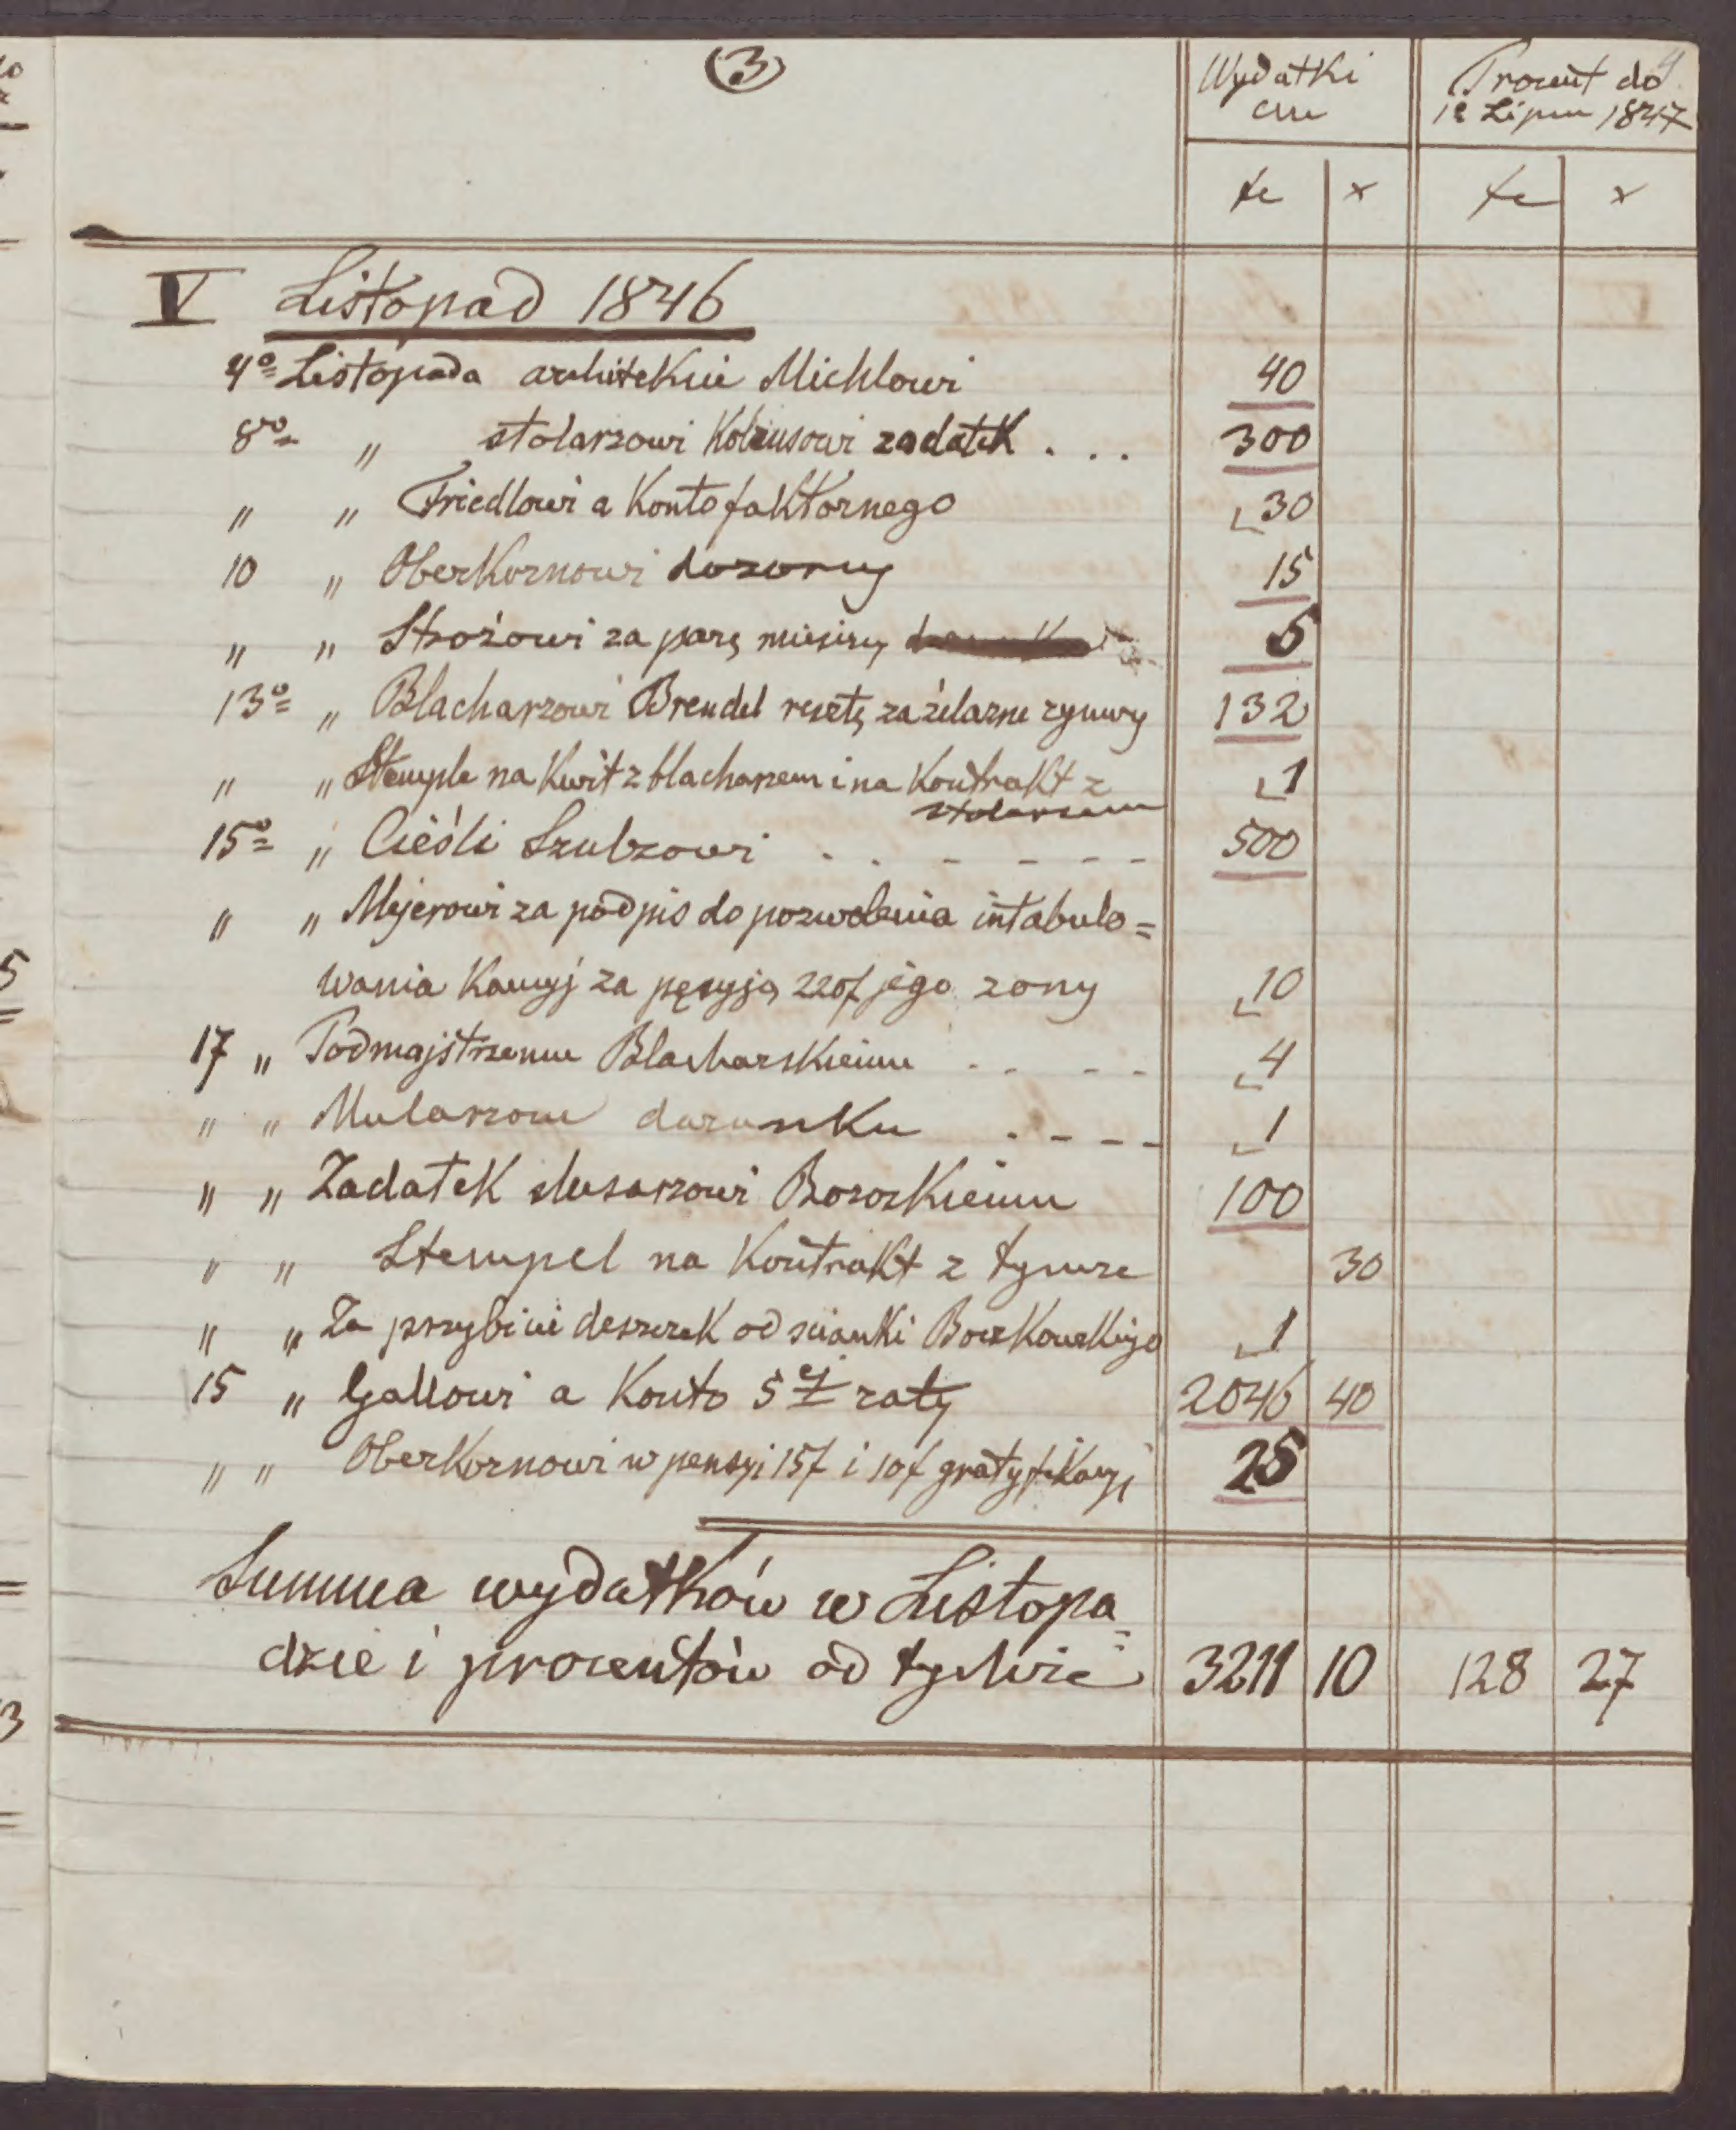 (3)
Wydatki
Procent do
12 Lipca 1847
fr x fr x
V Listopad 1846
4o Listopada architekcie Michlowi 40
8o „ stolarzowi Kolzusowi zadatek . . . 300
„ „ Friedlowi a Konto faktornego 30
10 „ Oberkornowi dozorcy 15
„ „ Stróżowi za parę miesięcy 5
13o „ Blacharzowi Brendel resztę za żelazne rynwy 132
„ „ Stemple na Kwit z blacharzem i na Kontrakt z
stolarzem 1
15o „ Cieśli Szulzowi . . - - - - 500
„ „ Mejerowi za podpis do pozwolenia intabulo=
wania Kaucyj za pęsyją 220f jego zony 10
17 „ Podmajstrzemu Blacharskiemu . . - - 4
„ „ Mularzom darunku . - - - 1
„ „ Zadatek slusarzowi Bozozkiemu 100
„ „ Stempel na Kontrakt z tymze 30
„ „ Za przybicie deszczek od scianki Boczkowskiego 1
15 „ Gallowi a Konto 5ej raty 2046 40
„ „ Oberkornowi w pensyi 15f i 10f gratyfikacyi 25
Summa wydatków w Listopa=
dzie i procentów od tychże 3211 10 128 27